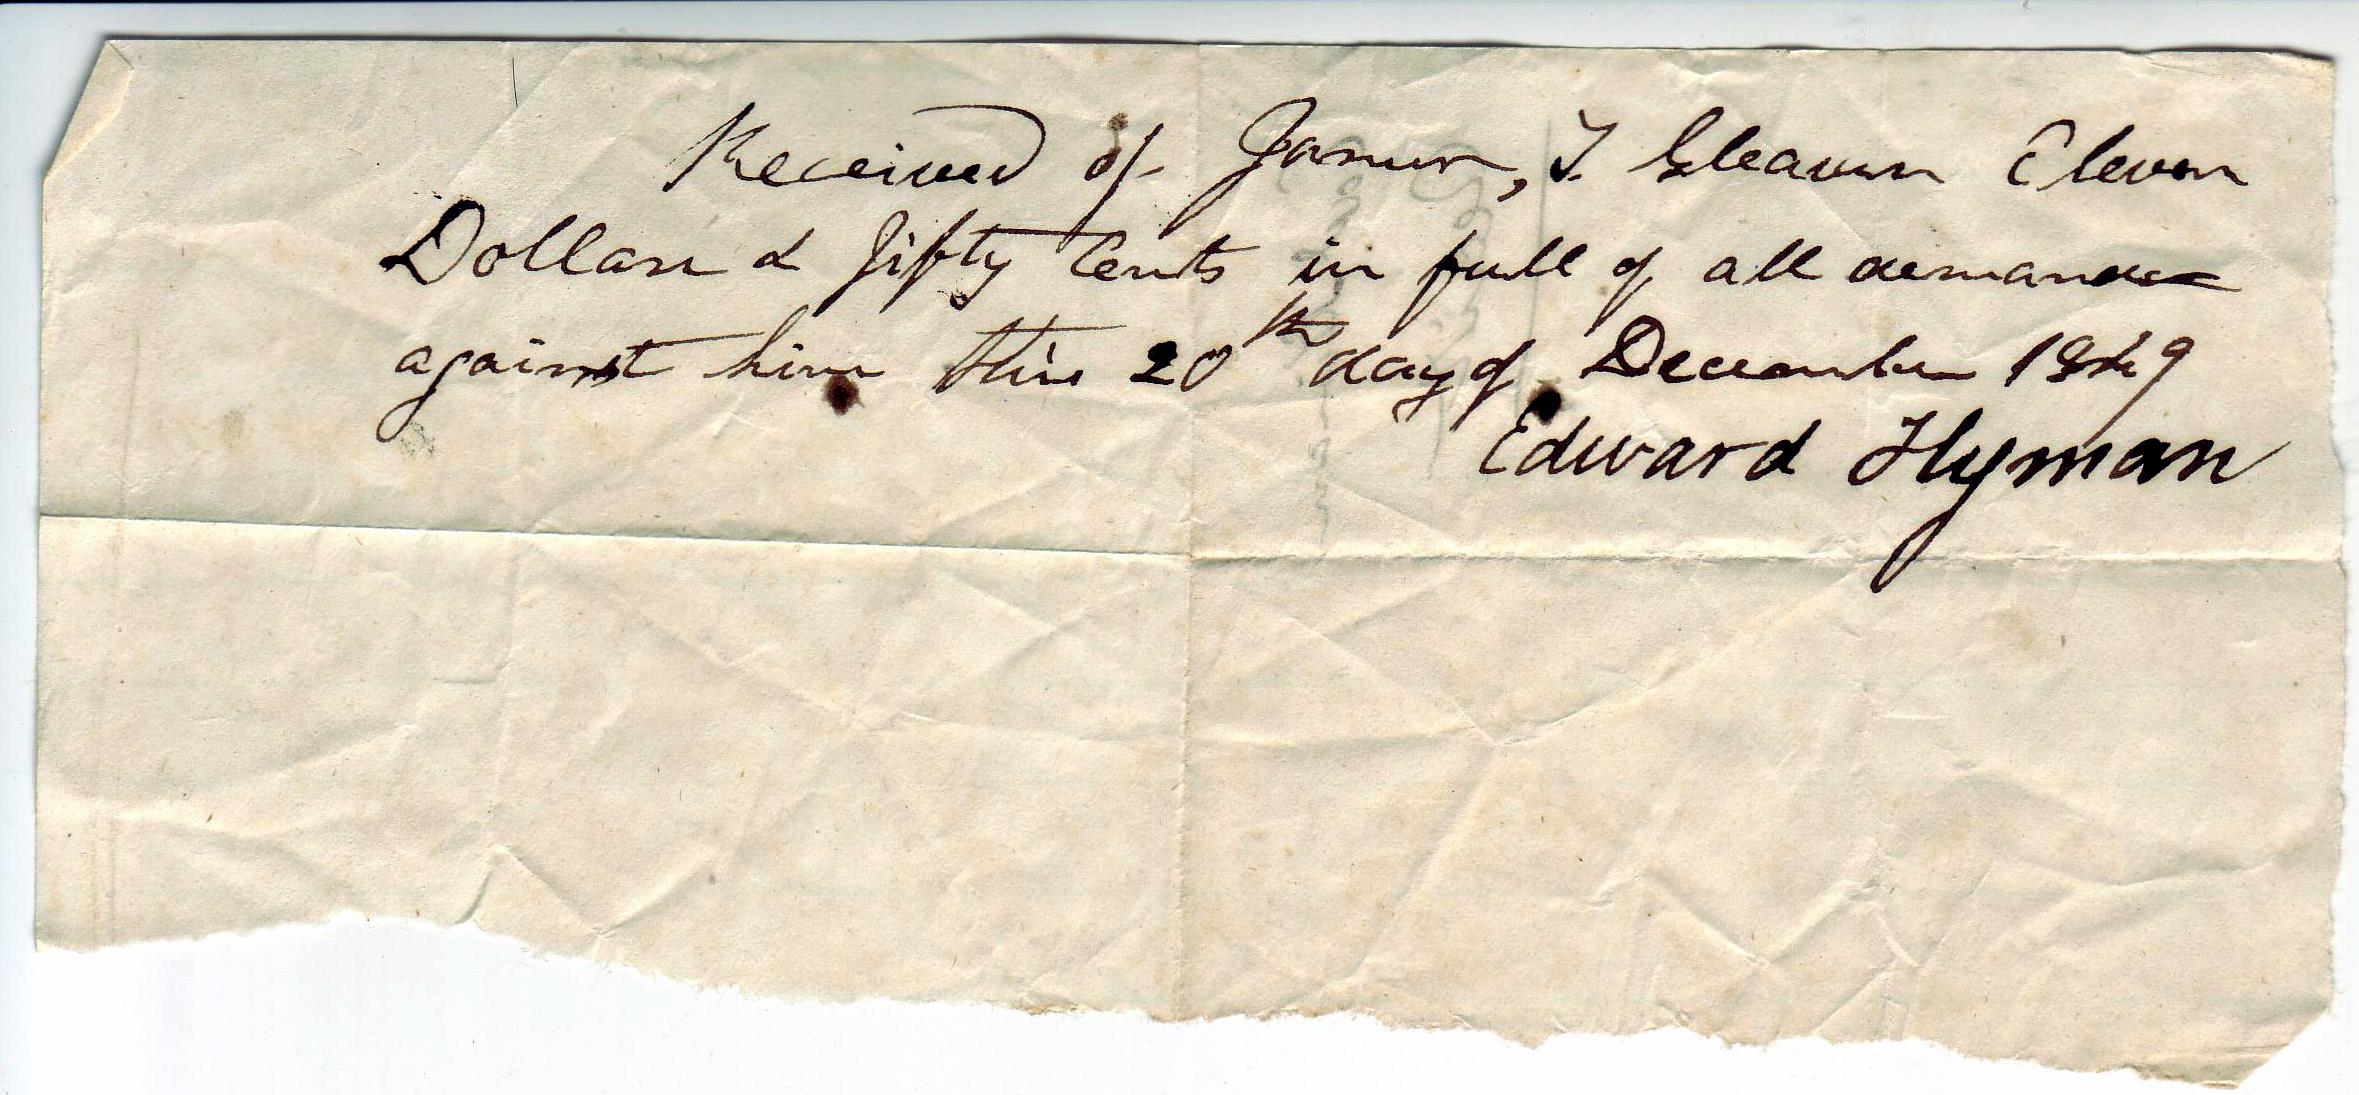 Received of James, T. Gleaven Eleven
Dollars & fifty Cents in full of all demands
against him this 20th day of December 1849
Edward Hyman